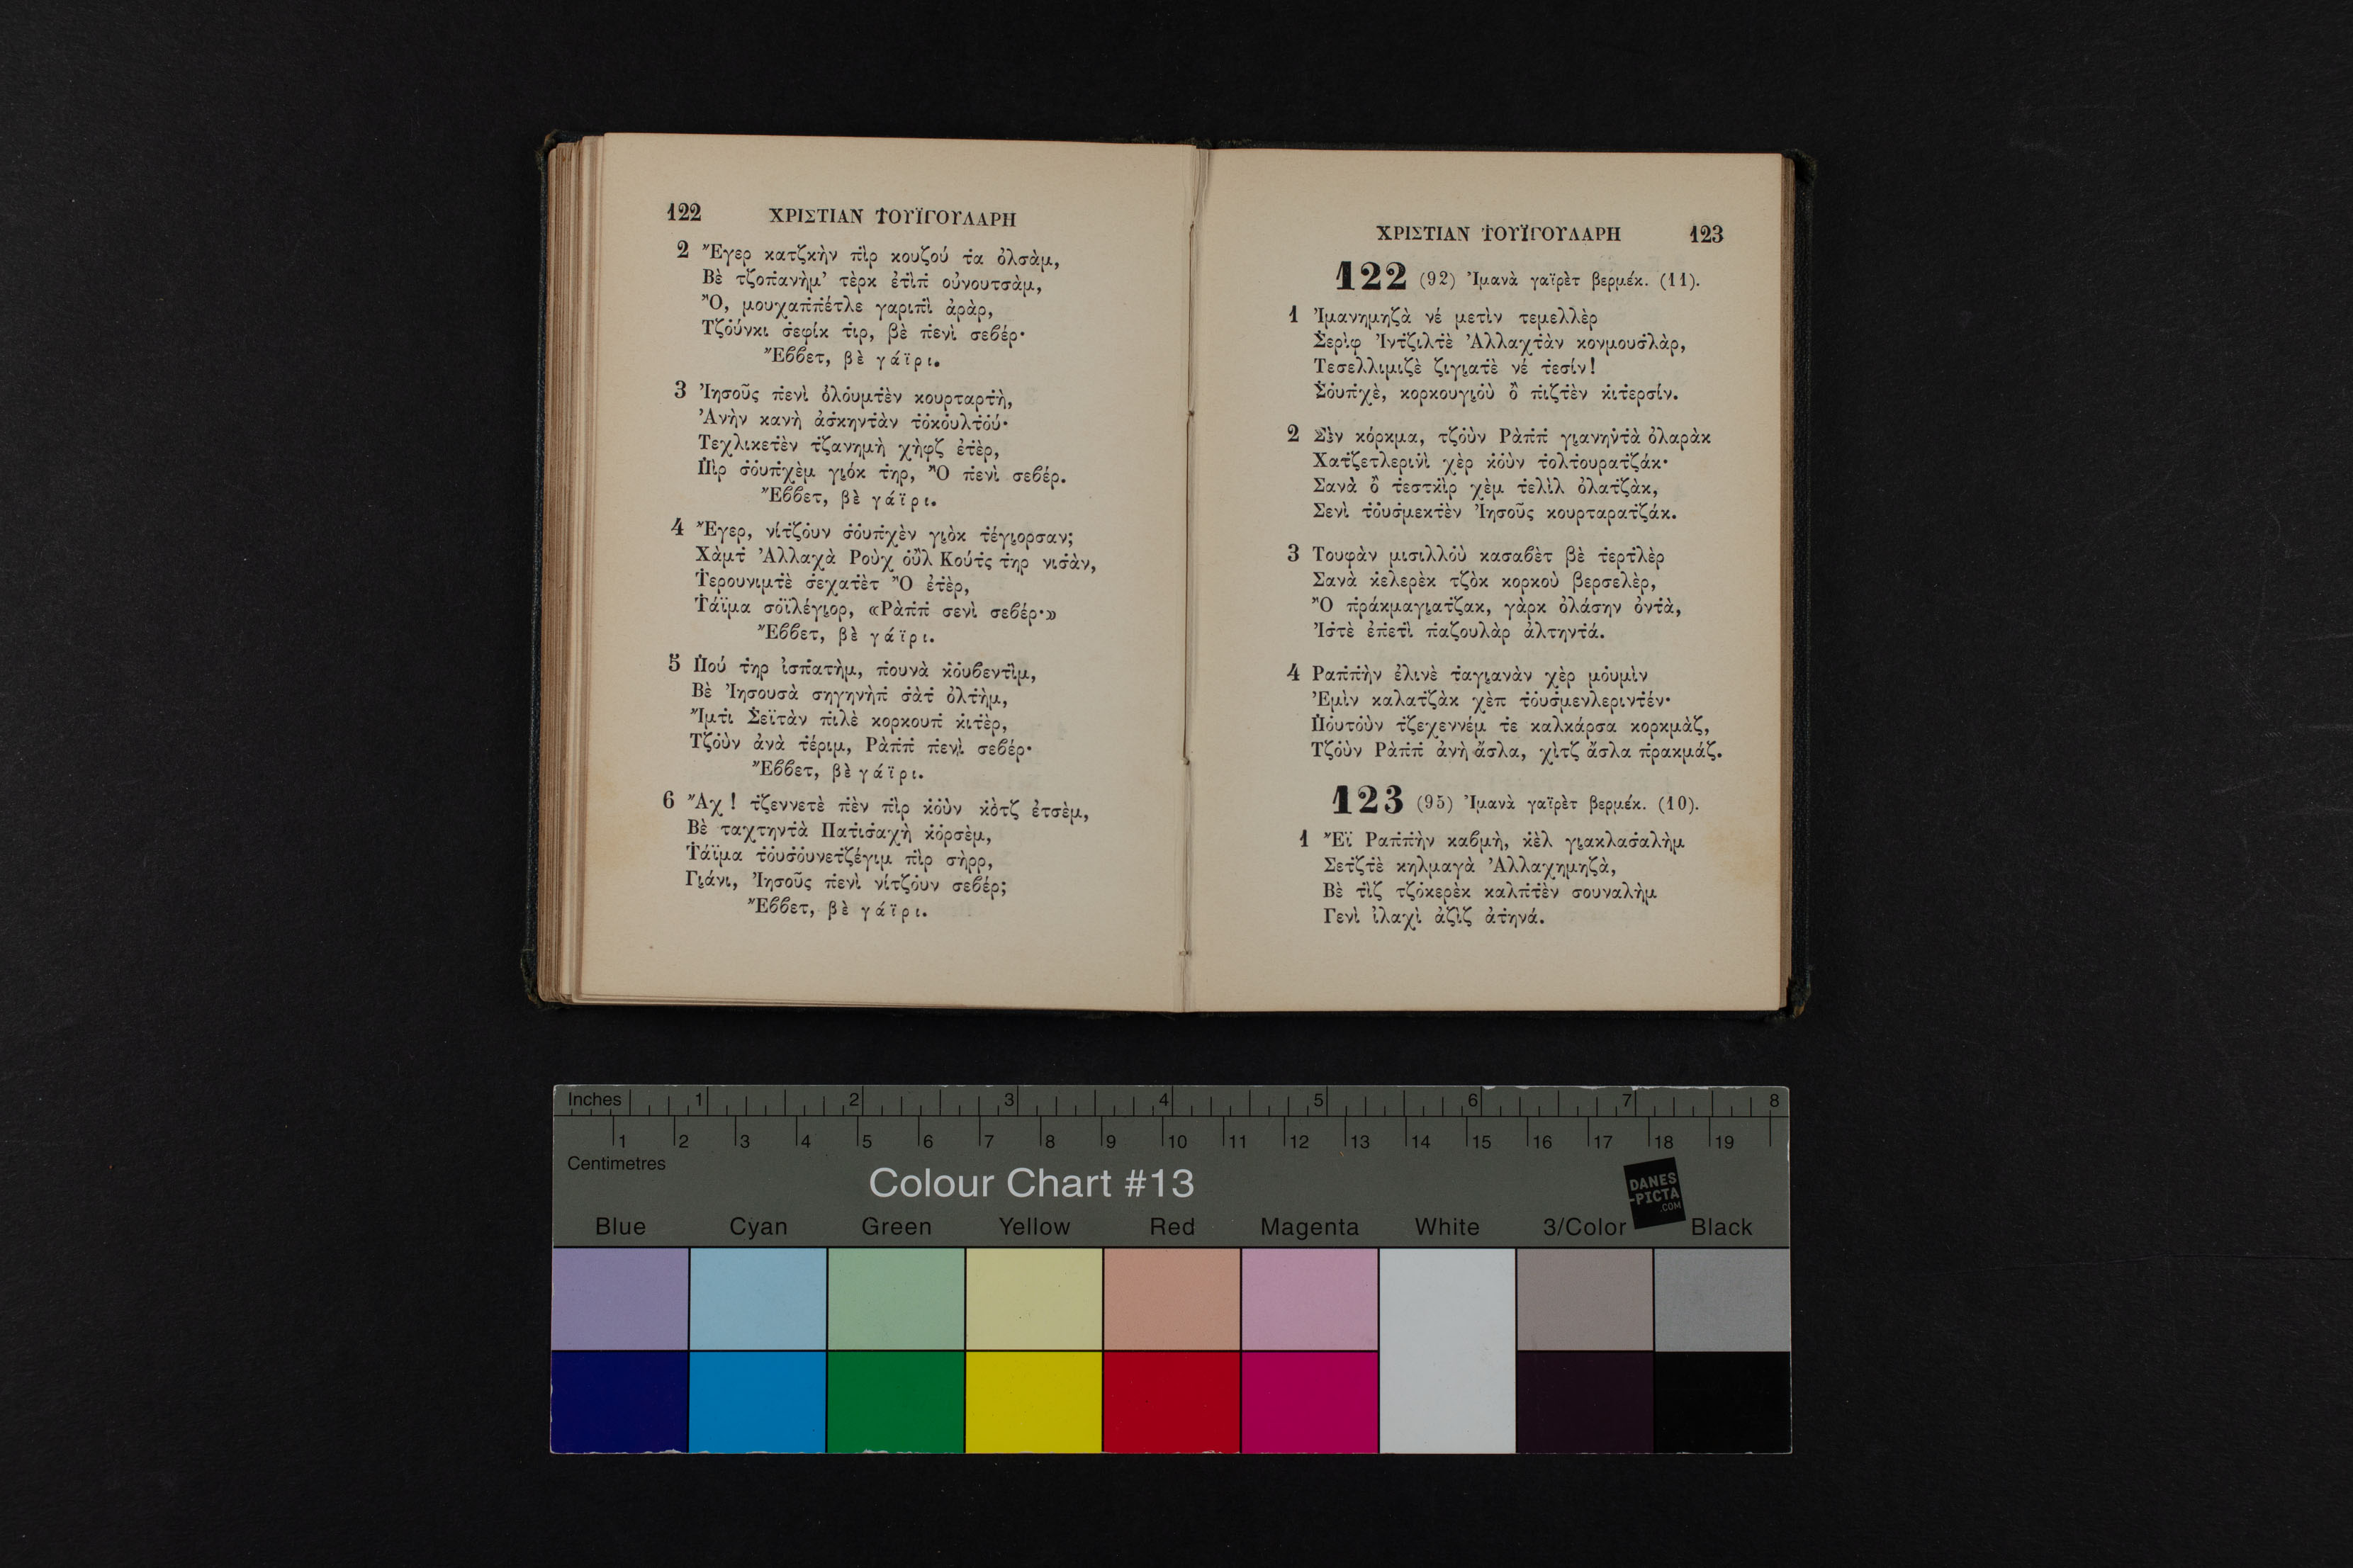 122 ΧΡΙΣΤΙΑΝ Τ̇ΟΥΪΓΟΥΛΑΡΗ
2 Ἔγερ κατζκὴν π̇ὶρ κουζοὺ τ̇α ὀλσὰμ,
Βὲ τζοπ̇ανὴμ’ τὲρκ ἐτ̇ὶπ̇ οὐνουτσὰμ,
Ὂ, μουχαπ̇π̇έτλε γαριπ̇ὶ ἀρὰρ,
Τζο̇ύνκι σ̇εφίκ τ̇ιρ, βὲ π̇ενὶ σεβέρ·
Ἔββετ, βὲ γάϊρι.
3 Ἰησοῦς π̇ενὶ ὀλο̇υμτ̇ὲν κουρταρτ̇ὴ,
Ἀνὴν κανὴ ἀσ̇κηντ̇ὰν τ̇οκο̇υλτ̇ού·
Τεχλικετ̇ὲν τ̇ζανημὴ χὴφζ ἐτ̇ὲρ,
Π̇ὶρ σ̇ο̇υπ̇χὲμ γι̮όκ τ̇ηρ, Ὂ π̇ενὶ σεβέρ.
Ἔββετ, βὲ γάϊρι.
4 Ἔγερ, νίτζο̇υν σ̇ο̇υπ̇χὲν γι̮ὸκ τ̇έγι̮ορσαν;
Χὰμτ̇ Ἀλλαχὰ Ροὺχ ο̇ὒλ Κούτ̇ς τ̇ηρ νισ̇ὰν,
Τ̇ερουνιμτ̇ὲ σ̇εχατ̇ὲτ Ὂ ἐτ̇ὲρ,
Τ̇άϊμα σοϊλέγι̮ορ, «Ρὰπ̇π̇ σενὶ σεβέρ·»
Ἔββετ, βὲ γάϊρι.
5 Π̇ού τ̇ηρ ἰσπ̇ατὴμ, π̇ουνὰ κ̇ο̇υβεντ̇ὶμ,
Βὲ Ἰησουσὰ σηγηνὴπ̇ σ̇ὰτ̇ ὀλτ̇ὴμ,
Ἴμτ̇ι Σ̇εϊτὰν π̇ιλὲ κορκουπ̇ κ̇ιτ̇ὲρ,
Τζο̇ὺν ἀνὰ τ̇έριμ, Ρὰπ̇π̇ π̇ενὶ σεβέρ·
Ἔββετ, βὲ γάϊρι.
6 Ἂχ ! τ̇ζεννετὲ π̇ὲν π̇ὶρ κ̇ο̇ὺν κ̇ὸτζ ἐτσὲμ,
Βὲ ταχτηντ̇ὰ Πατ̇ισ̇αχὴ κ̇ο̇ρσὲμ,
Τ̇άϊμα τ̇ο̇υσ̇ο̇υνετ̇ζέγιμ π̇ὶρ σὴρρ,
Γι̮άνι, Ἰησοῦς π̇ενὶ νίτζο̇υν σεβέρ;
Ἔββετ, βὲ γάϊρι.
ΧΡΙΣΤΙΑΝ Τ̇ΟΥΪΓΟΥΛΑΡΗ 123
122 (92) Ἰμανὰ γαϊρὲτ βερμέκ. (11).
1 Ἰμανημηζὰ νέ μετὶν τεμελλὲρ
Σ̇ερὶφ Ἰντ̇ζιλτ̇ὲ Ἀλλαχτ̇ὰν κονμουσ̇λὰρ,
Τεσελλιμιζὲ ζιγι̮ατ̇ὲ νέ τ̇εσίν!
Σ̇ο̇υπ̇χὲ, κορκουγι̮ο̇ὺ ὂ π̇ιζτ̇ὲν κ̇ιτ̇ερσίν.
2 Σ̇ὲν κόρκμα, τζο̇ὺν Ρὰπ̇π̇ γι̮ανηντ̇ὰ ὀλαρὰκ
Χατ̇ζετλερινὶ χὲρ κ̇ο̇ὺν τ̇ολτ̇ουρατ̇ζάκ·
Σανὰ ὂ τ̇εστκ̇ὶρ χὲμ τ̇ελὶλ ὀλατ̇ζὰκ,
Σενὶ τ̇ο̇υσ̇μεκτ̇ὲν Ἰησοῦς κουρταρατ̇ζάκ.
3 Τουφὰν μισιλλο̇ὺ κασαβὲτ βὲ τ̇ερτ̇λὲρ
Σανὰ κ̇ελερὲκ τζὸκ κορκοὺ βερσελὲρ,
Ὂ π̇ράκμαγι̮ατ̇ζακ, γὰρκ ὀλάσην ὀντ̇ὰ,
Ἰσ̇τὲ ἐπ̇ετ̇ὶ π̇αζουλὰρ ἀλτηντ̇ά.
4 Ραπ̇π̇ὴν ἐλινὲ τ̇αγι̮ανὰν χὲρ μο̇υμὶν
Ἐμὶν καλατ̇ζὰκ χὲπ τ̇ο̇υσ̇μενλεριντ̇έν·
Π̇ο̇υτ̇ο̇ὺν τ̇ζεχεννέμ τ̇ε καλκάρσα κορκμὰζ,
Τζο̇ὺν Ρὰπ̇π̇ ἀνὴ ἄσλα, χὶτζ ἄσλα π̇ρακμάζ.
123 (95) Ἰμανὰ γαϊρὲτ βερμέκ. (10).
1 Ἒϊ Ραπ̇π̇ὴν καβμὴ, κ̇ὲλ γι̮ακλασ̇αλὴμ
Σετ̇ζτ̇ὲ κηλμαγὰ Ἀλλαχημηζὰ,
Βὲ τ̇ὶζ τζο̇κερὲκ καλπ̇τ̇ὲν σουναλὴμ
Γενὶ ἰλαχὶ ἀζὶζ ἀτ̇ηνά.
Inches 1 2 3 4 5 6 7 8
1 2 3 4 5 6 7 8 9 10 11 12 13 14 15 16 17 18 19
Centimetres
Colour Chart #13
DANES
-PICTA
.COM
Blue Cyan Green Yellow Red Magenta White 3/Color Black